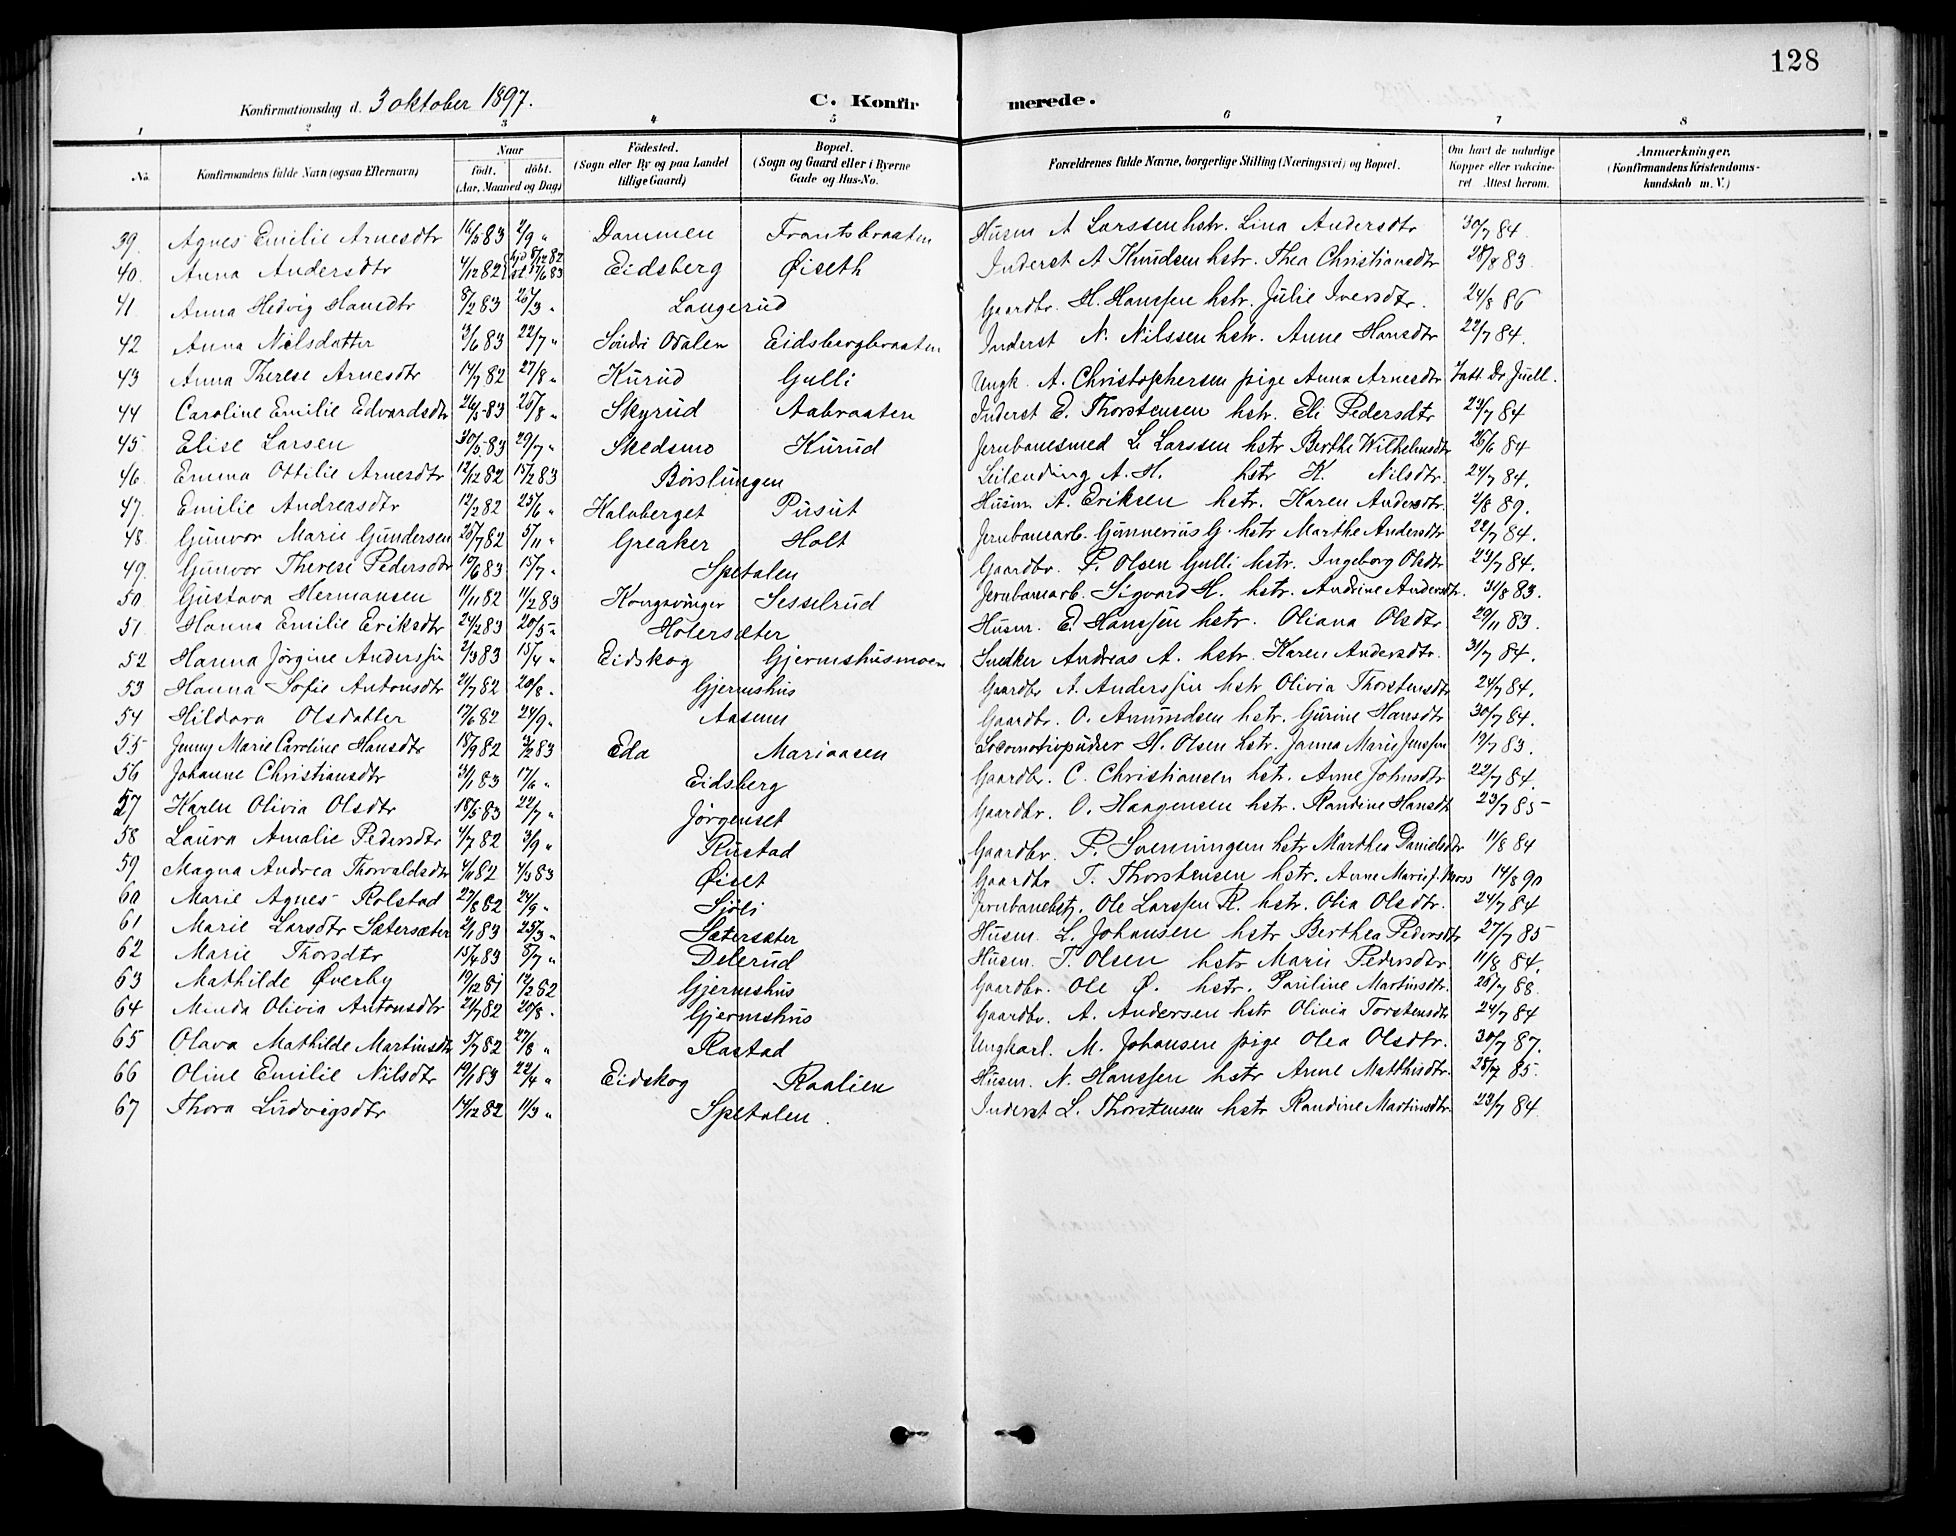 128
Konfirmationsdag d. 3 oktober 1897. C. Konfirmerede.
1 2 3 4 5 6 7 8
No. Konfirmandens fulde Navn (ogsaa Efternavn) Naar født. døbt. (Aar, Maaned og Dag) Fødested. (Sogn eller By og paa Landet tillige Gaard) Bopæl. (Sogn og Gaard eller i Byerne Gade og Hus-No. Forældrenes fulde Navne, borgerlige Stilling (Næringsvei) og Bopæl. Om havt de naturlige Kopper eller vakcineret Attest herom. Anmærkninger, (Konfirmandens Kristendomskundskab m. V.)
39. Agnes Emilie Arnesdtr 16/5 83 2/9 „ Dammen Frantsbraaten Husm A Larssen hstr. Lina Andersdtr 30/7 84.
40. Anna Andersdtr 4/12 82 hjd 8/12 82 st 17/6 83 Eidsberg Øiseth Inderst A Knudsen hstr. Thea Christiansdtr 28/8 83.
41 Anna Hedvig Hansdtr 8/2 83 26/3 „ Langerud Gaardbr. H. Hanssen hstr. Julie Iversdtr. 24/8 86
42 Anna Nilsdatter 3/6 83 22/7 „ Søndre Odalen Eidsbergbraaten Inderst N. Nilssen hstr. Anne Hansdtr 22/7 84.
43 Anna Therese Arnesdtr 14/7 82 27/8 „ Kurud Gulli Ungk. A. Christophersen pige Anna Arnesdtr Iatt. Dr Juell.
44 Caroline Emilie Edvardsdtr 26/5 83 26/8 „ Skyrud Aabraaten Inderst E. Thorstensen hstr. Eli Pedersdtr 24/7 84
45. Elise Larsen 30/5 83 29/7 „ Skedsmo Kurud Jernbanesmed L. Larssen hstr Berthe Wilhelmsdtr 26/6 84
46. Emma Ottilie Arnesdtr 12/12 82 15/2 83 Børslungen Leilending A. H. hstr K. Nilsdtr. 24/7 84.
47. Emilie Andreasdtr 12/3 82 25/6 „ Halvberget Pusut Husm A. Eriksen hstr. Karen Andersdtr. 2/8 89.
48. Gunvor Marie Gundersen 26/7 82 5/11 „ Greaker Holt Jernbanearb. Gunnerius G. hstr Marthe Andersdtr 22/7 84.
49. Gunvor Therese Pedersdtr 19/6 83 15/7 „ Spetalen Gaardbr. P. Olsen Gulli hstr. Ingeborg Olsdtr 23/7 84.
50. Gustava Hermansen 11/11 82 11/2 83 Kongsvinger Sesselrud Jernbanearb. Sigvard H. hstr. Andrine Andersdtr. 31/8 83.
51. Hanna Emilie Eriksdtr 24/2 83 20/5 „ Holersæter Husm. E. Hanssen hstr. Oliana Olsdtr. 29/11 83.
52 Hanna Jørgine Anderssen 2/3 83 15/4 „ Eidskog Gjermshusmoen Snedker Andreas A. hstr. Karen Andersdtr. 31/7 84.
53 Hanna Sofie Antonsdtr 21/7 82 20/8 „ Gjermshus Gaardbr A. Anderssen hstr Olivia Thorstensdtr 24/7 84.
54 Hildora Olsdatter 17/6 82 24/9 „ Aasum Gaardbr. O. Amundsen hstr. Gurine Hansdtr 30/7 84.
55 Jenny Marie Caroline Hansdtr 18/9 82 4/2 83 Eda Mariaasen Locomotivpudser H. Olsen hstr. Janna Marie Jenssen 19/7 83.
56 Johanne Christiansdtr 31/1 83 17/6 „ Eidsberg Gaardbr. C. Christiansen hst. Anne Johnsdtr 22/7 84.
57 Karen Olivia Olsdtr 18/5 83 22/7 „ Jørgenset Gaardbr. O. Haagensen hstr. Randine Hansdt 23/7 85
58 Laura Amalie Pedersdtr 4/7 82 3/9 „ Rustad Gaardbr. P. Svenningsen hstr Marthea Danielsdtr 11/8 84
59. Magna Andrea Thorvaldsdtr 4/11 82 4/3 83 Øiset Gaardbr T. Thorstensen hstr. Anne Marie J. Moss 14/8 90
60 Marie Agnes Rolstad 27/8 82 24/9 „ Sjøli Jernbanebstj. Ole Larssen R. hstr. Olia Olsdtr. 24/7 84
61 Marie Larsdtr Sætersæter 2/1 83 25/3 „ Sætersæter Husm. L. Johansen hstr Berthea Pedersdtr 27/7 85
62 Marie Thorsdtr 15/4 83 8/7 „ Delerud Husm. T. Olsen hstr Marie Pedersdtr. 11/8 84.
63 Mathilde Øverby 19/12 81 12/3 82 Gjermshus Gaardbr. Ole Ø. hstr. Pauline Martinsdtr. 26/7 88.
64 Minda Olivia Antonsdtr 21/7 82 20/8 „ Gjermshus Gaardbr. A. Andersen hstr Olivia Torstensdtr 24/7 84
65 Olava Mathilde Martinsdtr 5/7 82 27/8 „ Rastad Ungkarl. M. Johansen pige Olea Olsdtr. 30/7 87.
66 Oline Emilie Nilsdtr 19/1 83 22/4 „ Eidskog Raalien Husm. N. Hanssen hstr Anne Matthisdtr. 28/7 85.
67 Thora Ludvigsdtr 14/12 82 11/3 „ Spetalen. Inderst L. Thorstensen hstr Randine Martinsdtr. 23/7 84